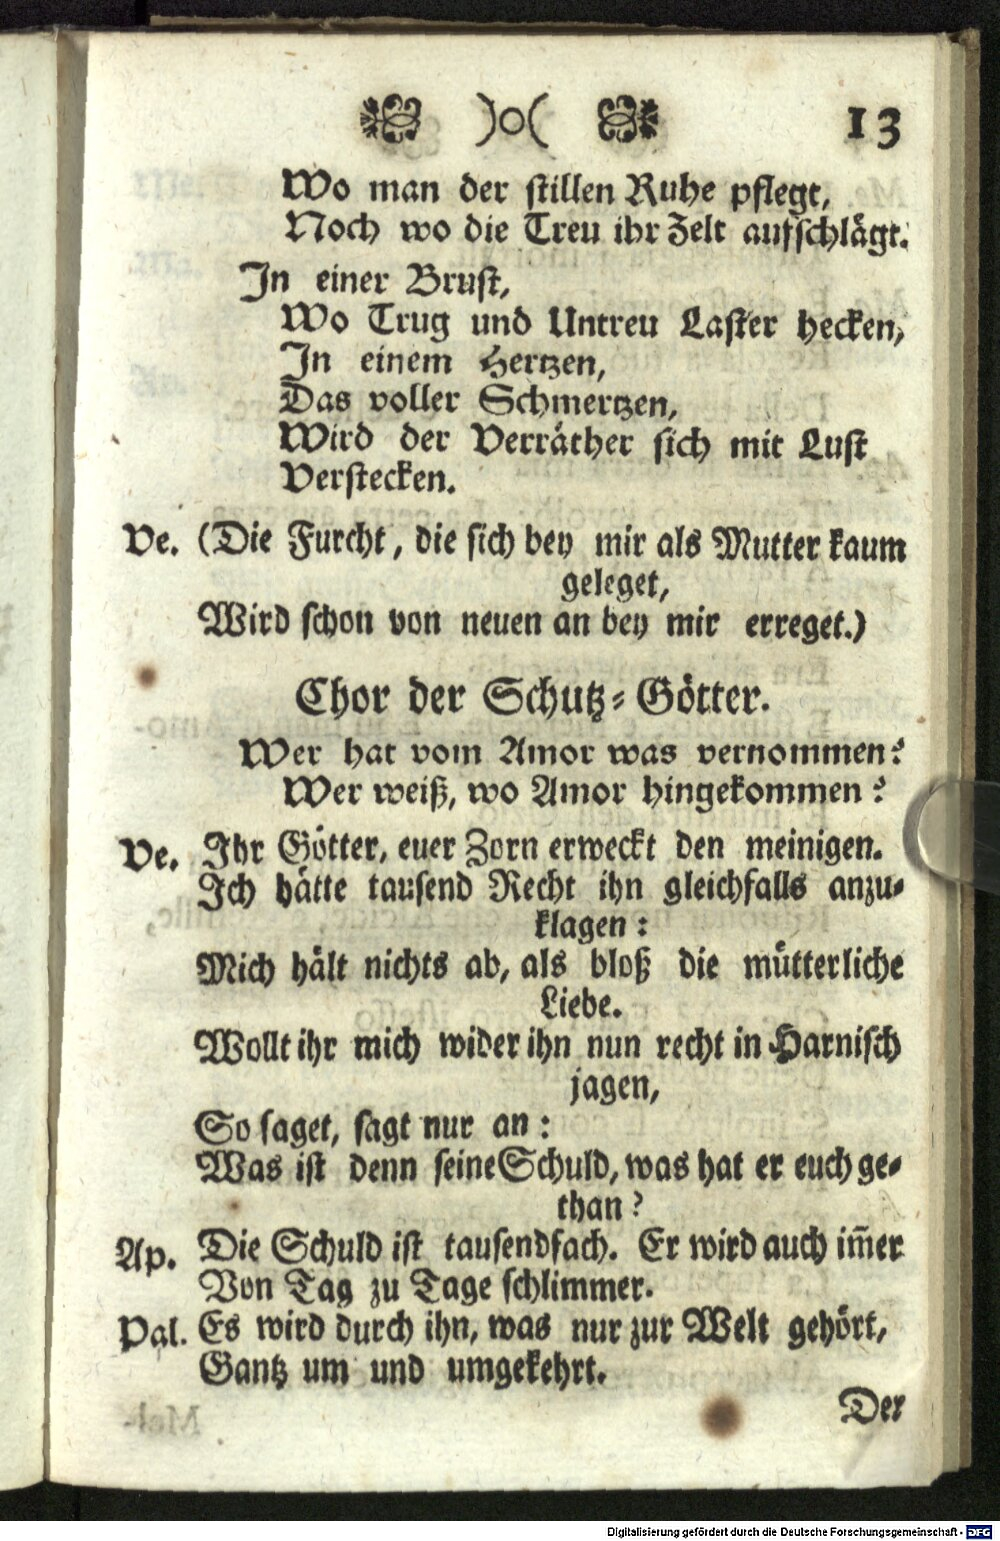 )o( 13
Wo man der stillen Ruhe pflegt,
Noch wo die Treu ihr Zelt aufschlägt.
In einer Brust,
Wo Trug und Untreu Laster hecken,
In einem Hertzen,
Das voller Schmertzen,
Wird der Verräther sich mit Lust
Verstecken.
Ve. (Die Furcht, die sich bey mir als Mutter kaum
geleget,
Wird schon von neuen an bey mir erreget.)
Chor der Schutz-Götter.
Wer hat vom Amor was vernommen?
Wer weiß, wo Amor hingekommen?
Ve. Ihr Götter, euer Zorn erweckt den meinigen.
Ich hätte tausend Recht ihn gleichfalls anzu-
klagen:
Mich hält nichts ab, als bloß die mütterliche
Liebe.
Wollt ihr mich wider ihn nun recht in Harnisch
jagen,
So saget, sagt nur an:
Was ist denn seine Schuld, was hat er euch ge-
than?
Ap. Die Schuld ist tausendfach. Er wird auch im̄er
Von Tag zu Tage schlimmer.
Pal. Es wird durch ihn, was nur zur Welt gehört,
Gantz um und umgekehrt.
Der
Digitalisierung gefördert durch die Deutsche Forschungsgemeinschaft - DFG